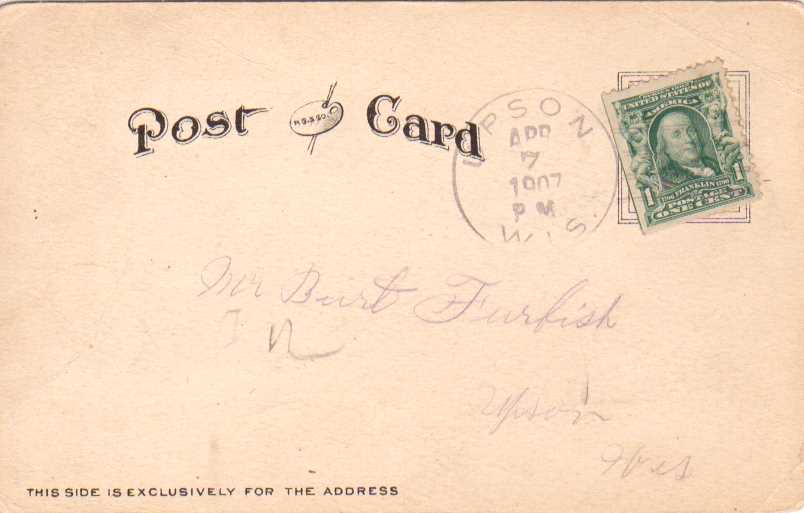 Post Card
UPSON
APR
7
1907
PM
WIS.
UNITED STATES OF
AMERICA
1 1706 FRANKLIN 1790 1
POSTAGE
ONE CENT
Mr Burt Furbish
Upson
Wis
THIS SIDE IS EXCLUSIVELY FOR THE ADDRESS